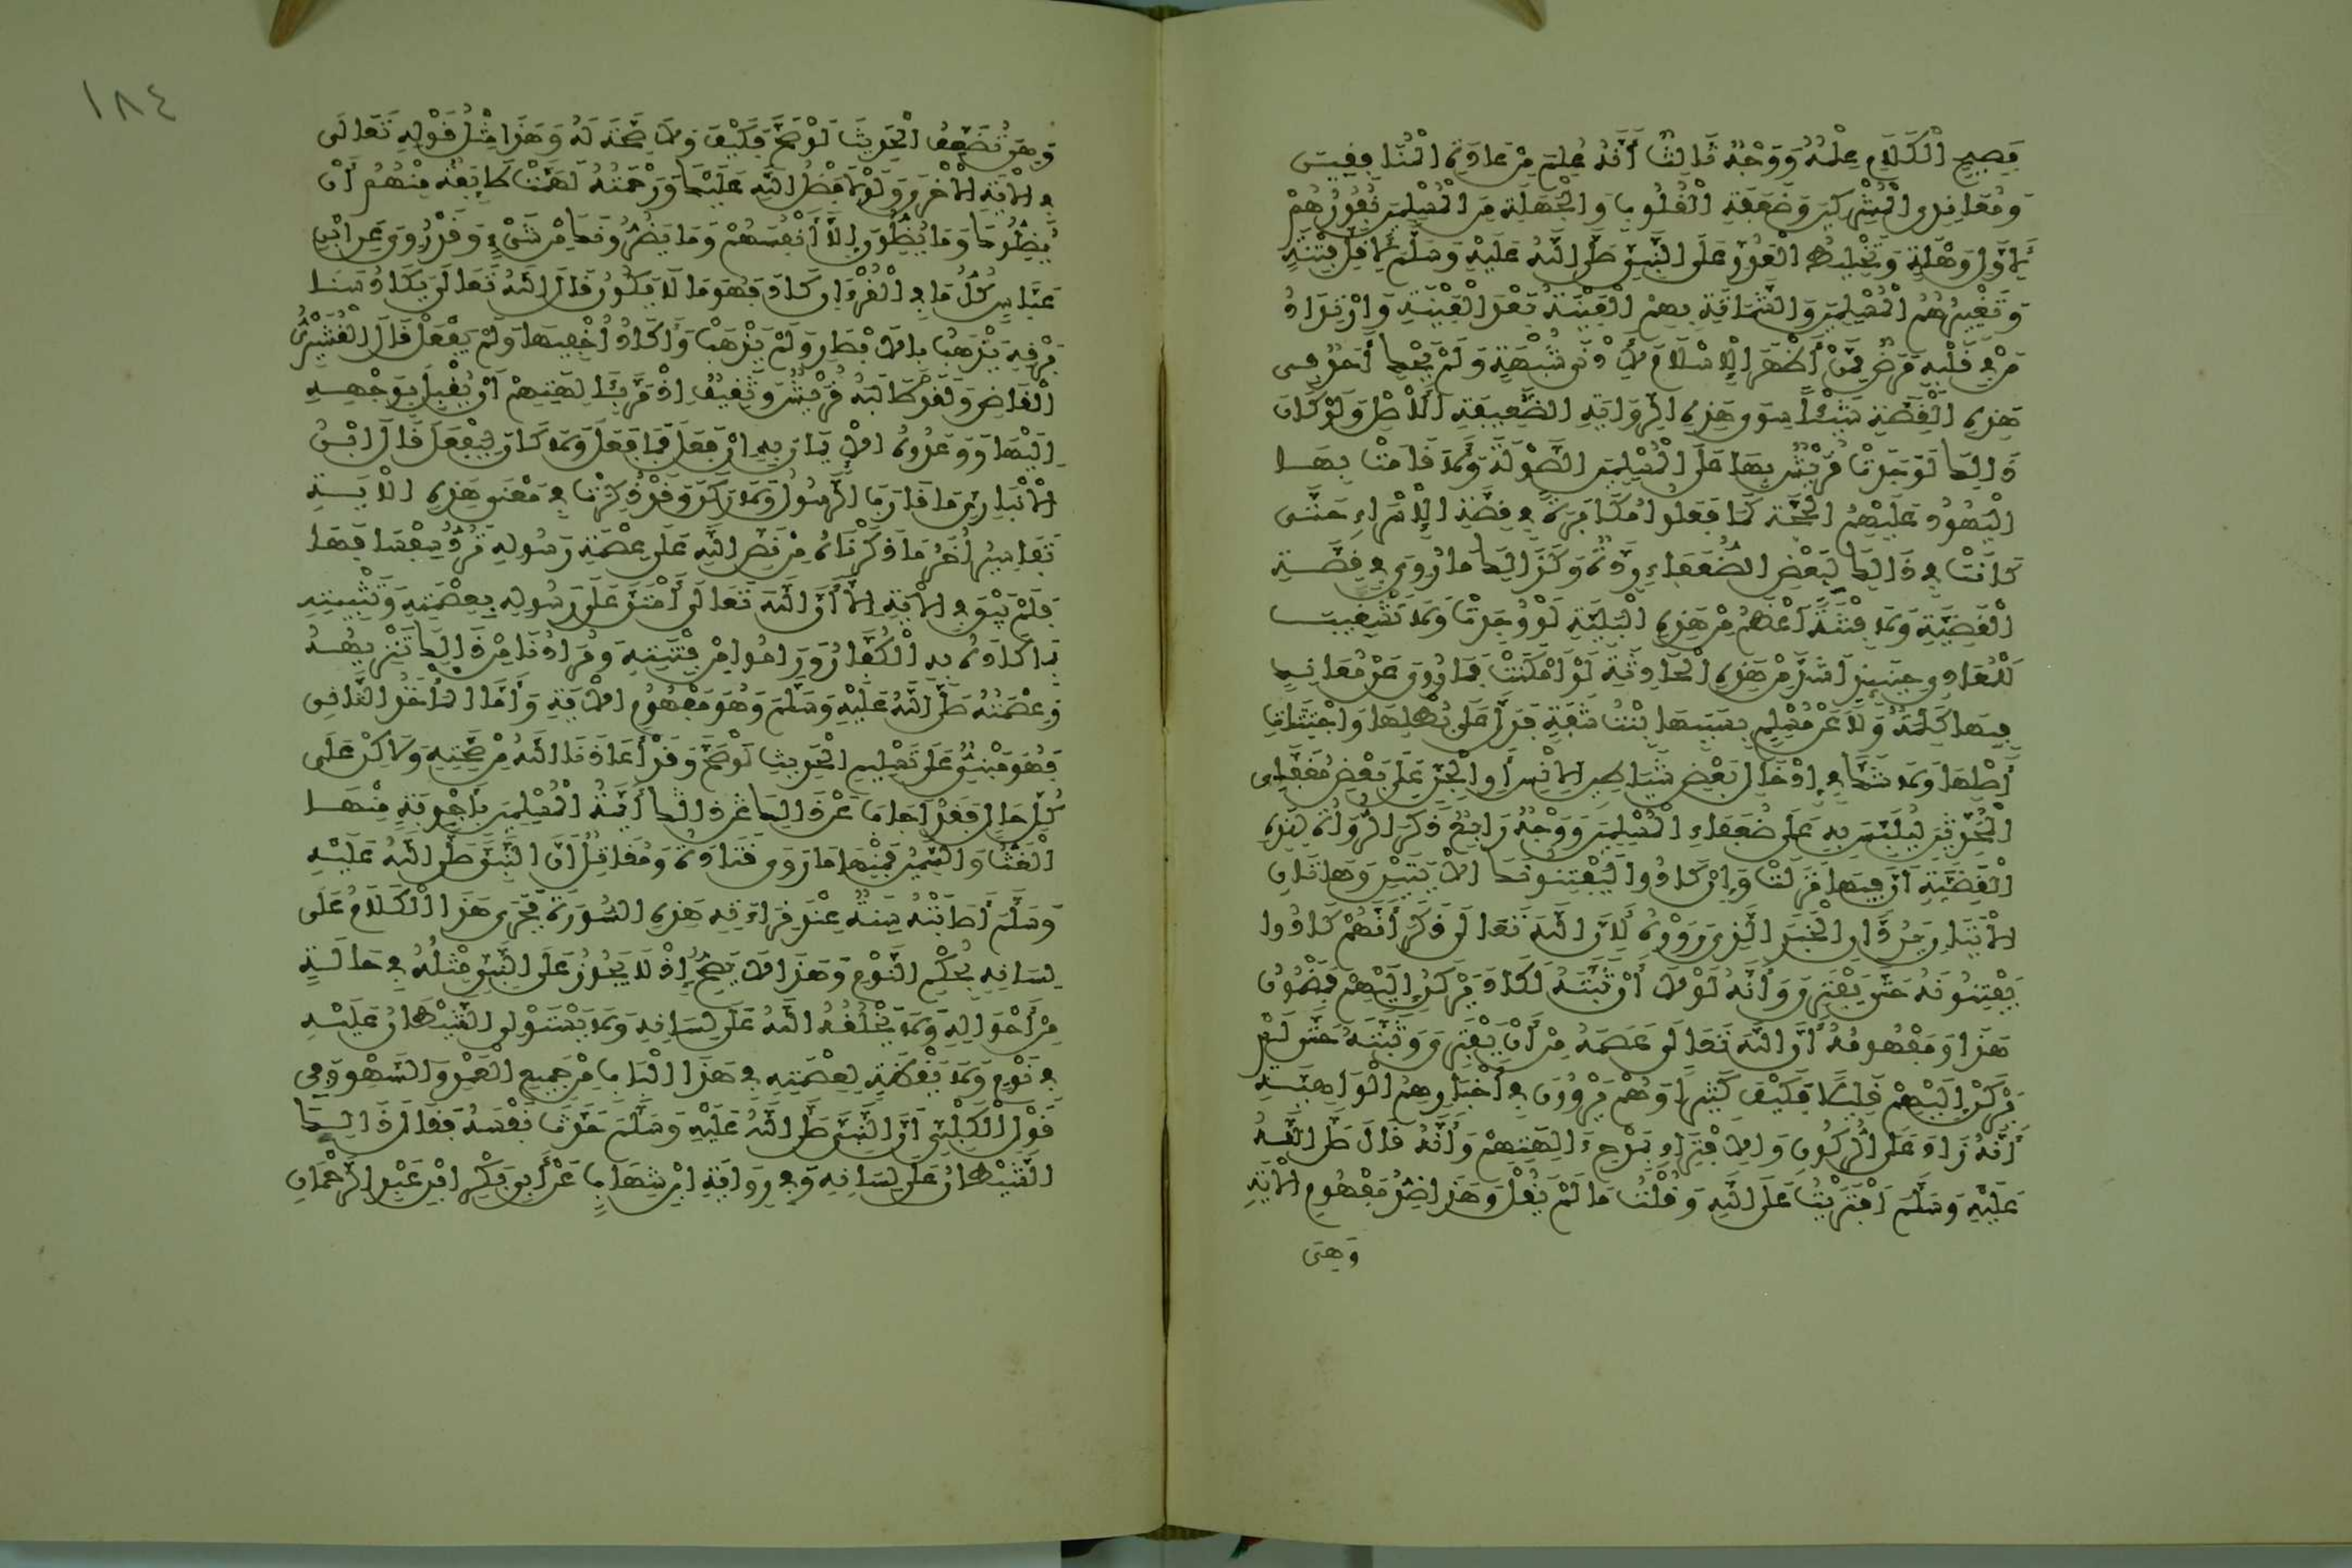 فصيح الكلام علمه ووجه ثالث أنه علم من عادة المنافقين
ومعاندي المشركين وضعفة القلوب والجهلة من المسلمين نفورهم
لأول وهلة وتخليط العدو على النبي صلى الله عليه وسلم لأقل فتنة
وتعييرهم المسلمين والشماتة بهم الفينة بعد الفينة وارتداد
من في قلبه مرض ممن أظهر الإسلام لأدنى شبهة ولم يحك أحد في
هذه القصة شيئا سوى هذه الرواية الضعيفة الأصل ولو كان
ذالك لوجدت قريش بها على المسلمين الصولة ولا قامت بها
اليهود عليهم الحجة كما فعلوا مكابرة في قصة الإسراء حتى
كانت في ذالك لبعض الضعفاء ردة وكذالك ما روي في قصة
القضية ولا فتنة أعظم من هذه البلية لو وجدت ولا تشغيب
للمعادي حينئذ أشد من هذه الحادثة لو أمكنت فما روي عن معاند
فيها كلمة ولا عن مسلم بسببها بنت شفة فدل على بطلها واجتثاث
أصلها ولا شك في إدخال بعض شياطين الإنس أو الجن على بعض مغفلي
المحدثين ليلبس به على ضعفاء المسلمين ووجه رابع ذكر الرواة لهذه
القضية أن فيها نزلت وإن كادوا ليفتنونك الآيتين وهاتان
الآيتان تردان الخبر الذي رووه لأن الله تعالى ذكر أنهم كادوا
يفتنونه حتى يفتري وأنه لولا أن ثبته لكاد يركن إليهم فمضمون
هذا ومفهومه أن الله تعالى عصمه من أن يفتري وثبته حتى لم
يركن إليهم قليلا فكيف كثيرا وهم يروون في أخبارهم الواهية
أنه زاد على الركون والافتراء بمدح ءالهتهم وأنه قال صلى الله
عليه وسلم افتريت على الله وقلت ما لم يقل وهذا ضد مفهوم الآية
وهي
١٨٤
وهي تضعف الحديث لو صح فكيف ولا صحة له وهذا مثل قوله تعالى
في الآية الأخرى ولولا فضل الله عليك ورحمته لهمت طائفة منهم أن
يضلوك وما يضلون إلا أنفسهم وما يضرونك من شيء وقد روي عن ابن
عباس كل ما في القرءان كاد فهو ما لا يكون قال الله تعالى يكاد سنا
برقه يذهب بالأبصار ولم يذهب وأكاد أخفيها ولم يفعل قال القشيري
القاضي ولقد طالبه قريش وثقيف إذ مر بئالهتهم أن يقبل بوجهه
إليها ووعدوه الإيمان به إن فعل فما فعل ولا كان ليفعل قال ابن
الأنباري ما قارب الرسول ولا ركن وقد ذكرت في معنى هذه الآية
تفاسير أخر ما ذكرناه من نص الله على عصمة رسوله ترد سفسافها
فلم يبق في الآية إلا أن الله تعالى امتن على رسوله بعصمته وتثبيته
بما كاده به الكفار وراموا من فتنته ومرادنا من ذالك تنزيهه
وعصمته صلى الله عليه وسلم وهو مفهوم الآية وأما المأخذ الثاني
فهو مبني على تسليم الحديث لو صح وقد أعاذنا الله من صحته ولاكن على
كل حال فقد أجاب عن ذالك أئمة المسلمين بأجوبة منها
الغث والسمين فمنها ما روى قتادة ومقاتل أن النبي صلى الله عليه
وسلم أصابته سنة عند قراءته هذه السورة فجرى هذا الكلام على
لسانه بحكم النوم وهذا لا يصح إذ لا يجوز على النبي مثله في حالة
من أحواله ولا يخلقه الله على لسانه ولا يستولي الشيطان عليه
في نوم ولا يقظة لعصمته في هذا الباب من جميع العمد والسهو وفي
قول الكلبي أن النبي صلى الله عليه وسلم حدث نفسه فقال ذالك
الشيطان على لسانه وفي رواية ابن شهاب عن أبي بكر ابن عبد الرحمان